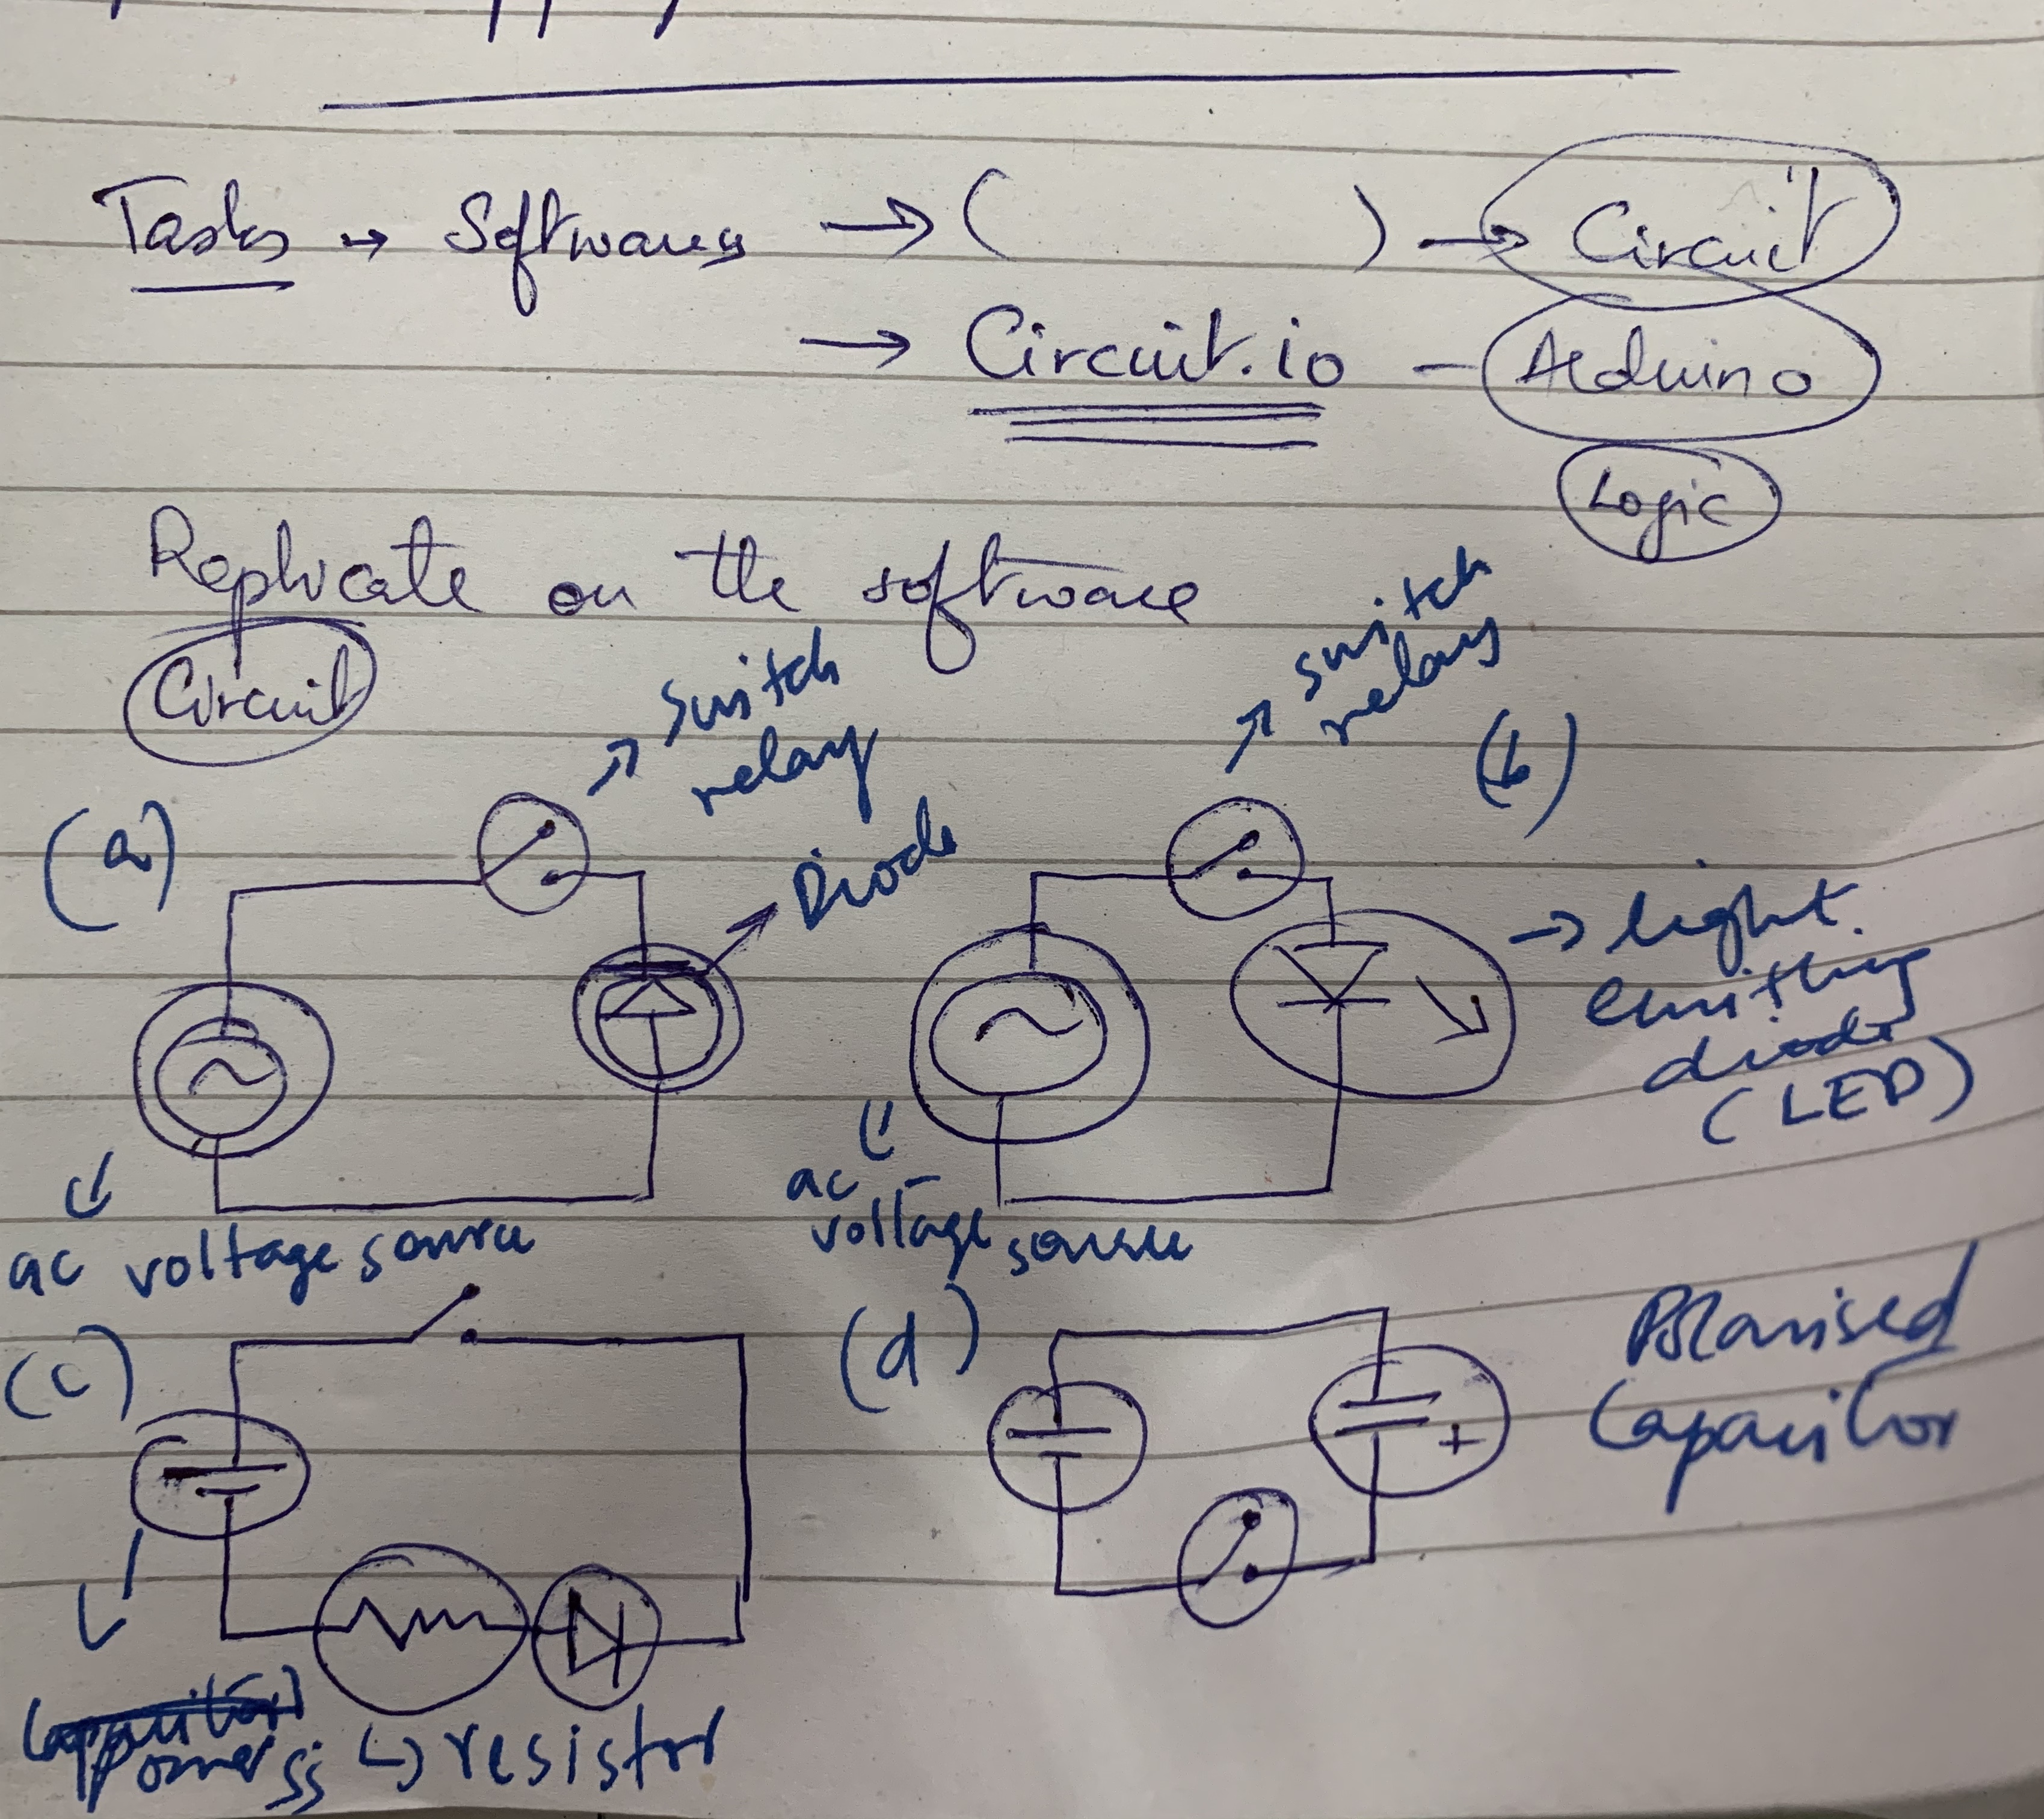 Tasks → Softwares → (          ) → Circuit
→ Circuit.io – Arduino
Logic
Replicate on the software
Circuit
(a)
→ switch
relay
Diode
ac voltage source
→ switch
relay
(b)
→ light
emitting
diode
(LED)
ac
voltage source
(c)
↳ resistor
(d)
+
Polarised
Capacitor